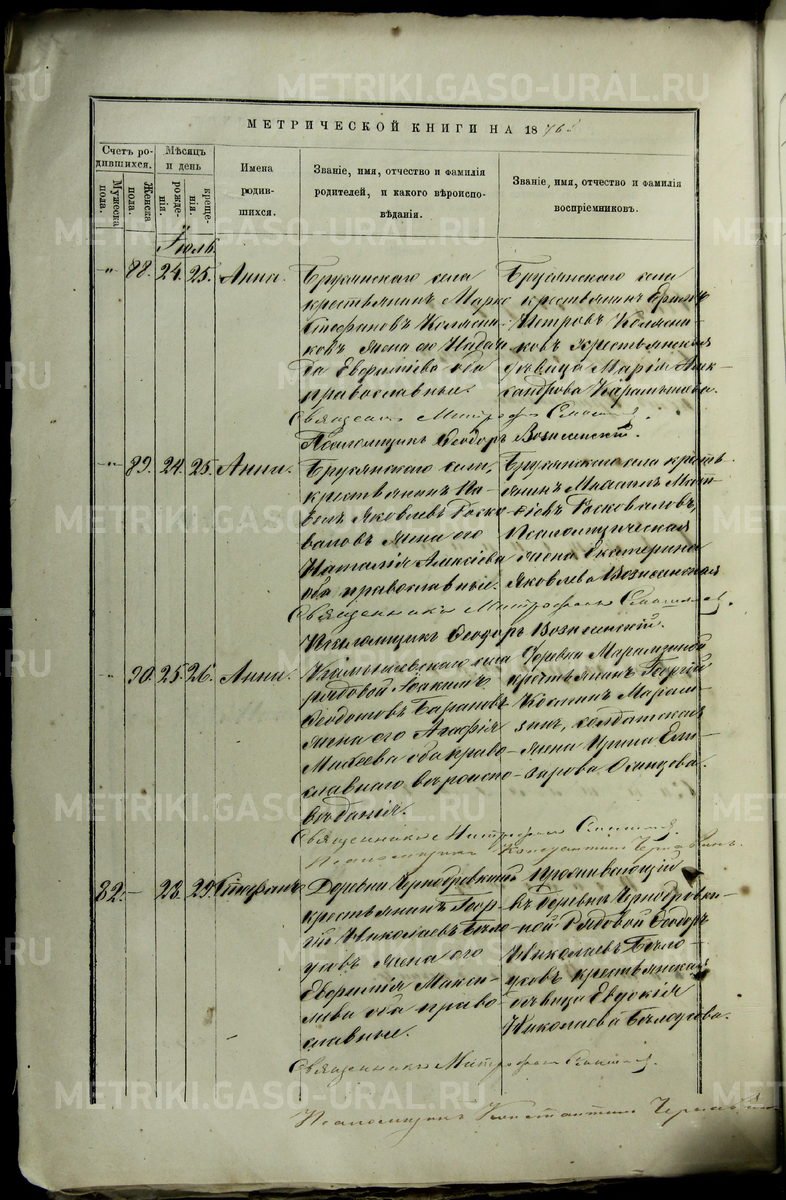 МЕТРИЧЕСКОЙ КНИГИ НА 18
Счетъ ро-
дившихся.
Мужеска
пола.
Женска
пола.
Мѣсяцъ
и день
рожде-
нія.
креще-
нія.
Имена
родив-
шихся.
Званіе, имя, отчество и фамилія
родителей, и какого вѣроиспо-
вѣданія.
Званіе, имя, отчество и фамилія
воспріемниковъ.
Іюль
88. 24. 25. Анна.
Брусянскаго села
крестьянинъ Марко
Стефановъ Колясни-
ковъ жена его Надеж-
да Евфиміева оба
православные.
Брусянскаго села
крестьянинъ
Петровъ Колясни-
ковъ крестьянская
дѣвица Марія Алек-
сандрова Карамышева.
Священникъ Митрофанъ
Псаломщикъ Ѳеодоръ Вознесенскій.
89. 24. 25. Анна.
Брусянскаго села,
крестьянинъ Па-
велъ Яковлевъ Роско-
валовъ жена его
Наталія Алексѣева
оба православные.
Брусянскаго села кресть-
янинъ Михаилъ Мат-
ѳіевъ Росковаловъ,
Псаломщическая
жена Екатерина
Яковлева Вознесенская
Священникъ Митрофанъ
Псаломщикъ Ѳеодоръ Вознесенскій.
90. 25. 26. Анна.
села
рядовой Іоакимъ
Ѳеодотовъ Барановъ
жена его Агафія
Михеева оба право-
славнаго вѣроиспо-
вѣданія.
Деревни Марамзиной
крестьянинъ Георгій
Козминъ Марам-
зинъ, солдатская
жена Ирина Ели-
зарова Осинцева.
Священникъ Митрофанъ
Псаломщикъ Константинъ
82. 28. 29. Стефанъ
Деревни
крестьянинъ Геор-
гій Николаевъ Бѣло-
усовъ жена его
Евфимія Макси-
мова оба право-
славные.
Проживающій
въ деревнѣ
рядовой Ѳеодоръ
Николаевъ Бѣло-
усовъ крестьянская
дѣвица Евдокія
Николаева Бѣлоусова.
Священникъ Митрофанъ
Псаломщикъ Константинъ
METRIKI.GASO-URAL.RU